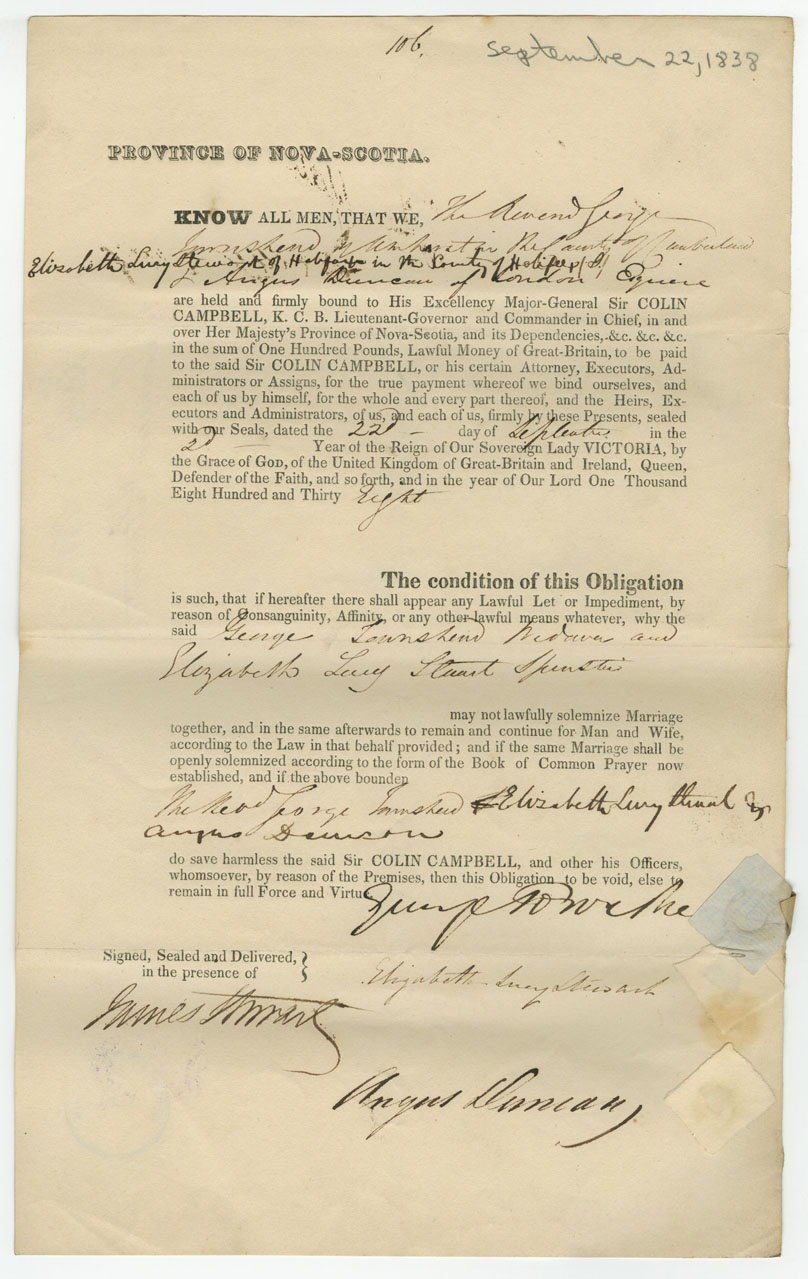 106.
September 22, 1838
PROVINCE OF NOVA-SCOTIA.
KNOW ALL MEN, THAT WE, The Reverend George
Townshend of Amherst in the County of Cumberland
Elizabeth Lucy Stewart of Halifax in the County of Halifax
& Angus Duncan of London Esquire
are held and firmly bound to His Excellency Major-General Sir COLIN
CAMPBELL, K. C. B. Lieutenant-Governor and Commander in Chief, in and
over Her Majesty's Province of Nova-Scotia, and its Dependencies, &c. &c. &c.
in the sum of One Hundred Pounds, Lawful Money of Great-Britain, to be paid
to the said Sir COLIN CAMPBELL, or his certain Attorney, Executors, Ad-
ministrators or Assigns, for the true payment whereof we bind ourselves, and
each of us by himself, for the whole and every part thereof, and the Heirs, Ex-
ecutors and Administrators, of us, and each of us, firmly by these Presents, sealed
with our Seals, dated the 22d day of September in the
2d Year of the Reign of Our Sovereign Lady VICTORIA, by
the Grace of GOD, of the United Kingdom of Great-Britain and Ireland, Queen,
Defender of the Faith, and so forth, and in the year of Our Lord One Thousand
Eight Hundred and Thirty Eight
The condition of this Obligation
is such, that if hereafter there shall appear any Lawful Let or Impediment, by
reason of Consanguinity, Affinity, or any other lawful means whatever, why the
said George Townshend Widower and
Elizabeth Lucy Stuart Spinster
may not lawfully solemnize Marriage
together, and in the same afterwards to remain and continue for Man and Wife,
according to the Law in that behalf provided; and if the same Marriage shall be
openly solemnized according to the form of the Book of Common Prayer now
established, and if the above bounden
The Revd George Townshend Elizabeth Lucy Stuart &
Angus Duncan
do save harmless the said Sir COLIN CAMPBELL, and other his Officers,
whomsoever, by reason of the Premises, then this Obligation to be void, else to
remain in full Force and Virtue
George
Signed, Sealed and Delivered, }
in the presence of
Elizabeth Lucy Stewart
James Stewart
Angus Duncan